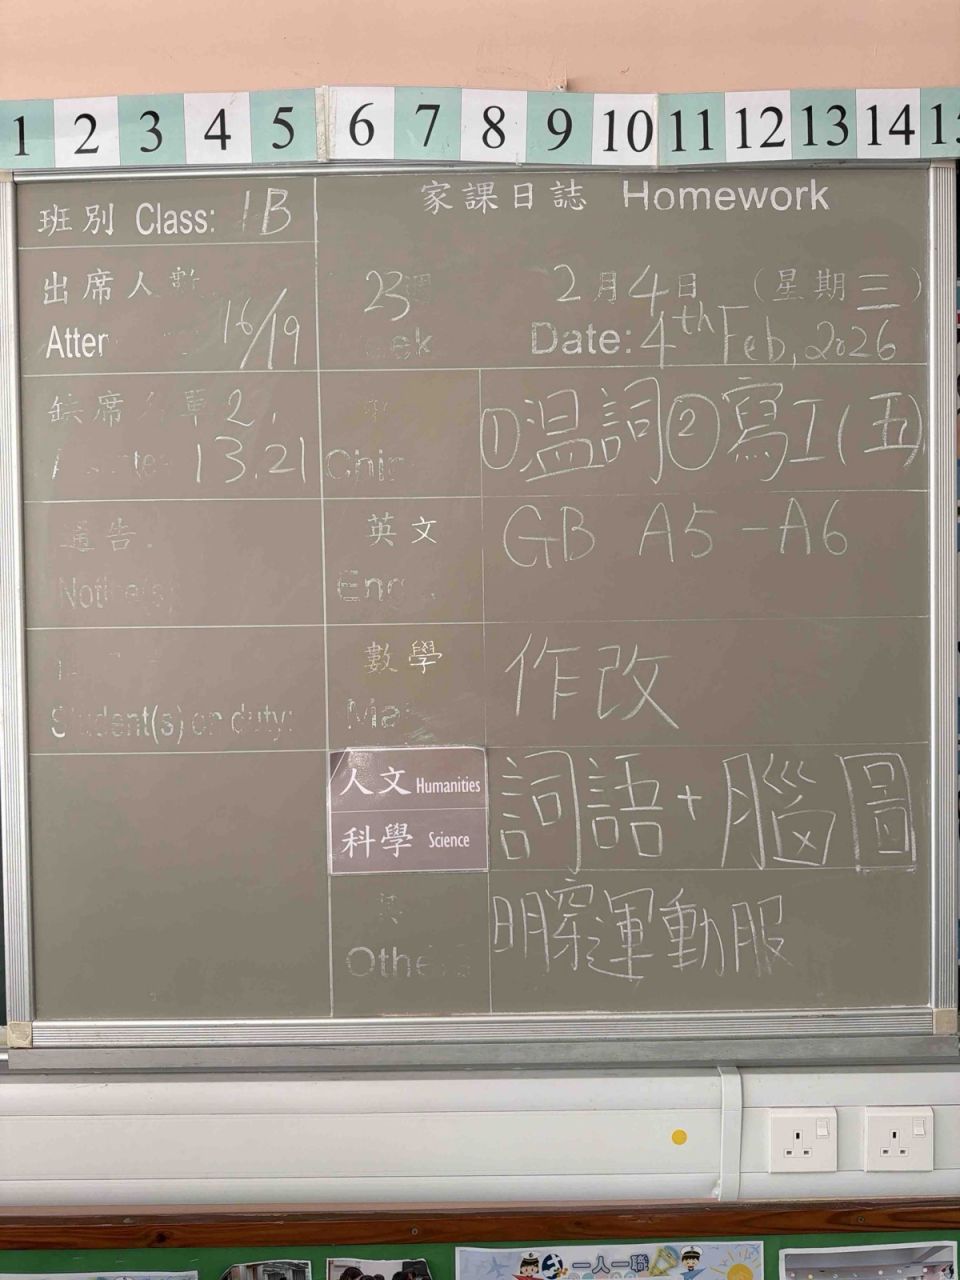 1 2 3 4 5 6 7 8 9 10 11 12 13 14
班別 Class: 1B
家課日誌 Homework
出席人數
16/19
23週
2月4日 (星期三)
Date: 4th Feb, 2026
缺席名單 2,
13.21
①温詞②寫工(五)
通告
英文
GB A5-A6
數學
作改
Student(s) on duty:
人文 Humanities
科學 Science
詞語+腦圖
Others
明穿運動服
一人一職